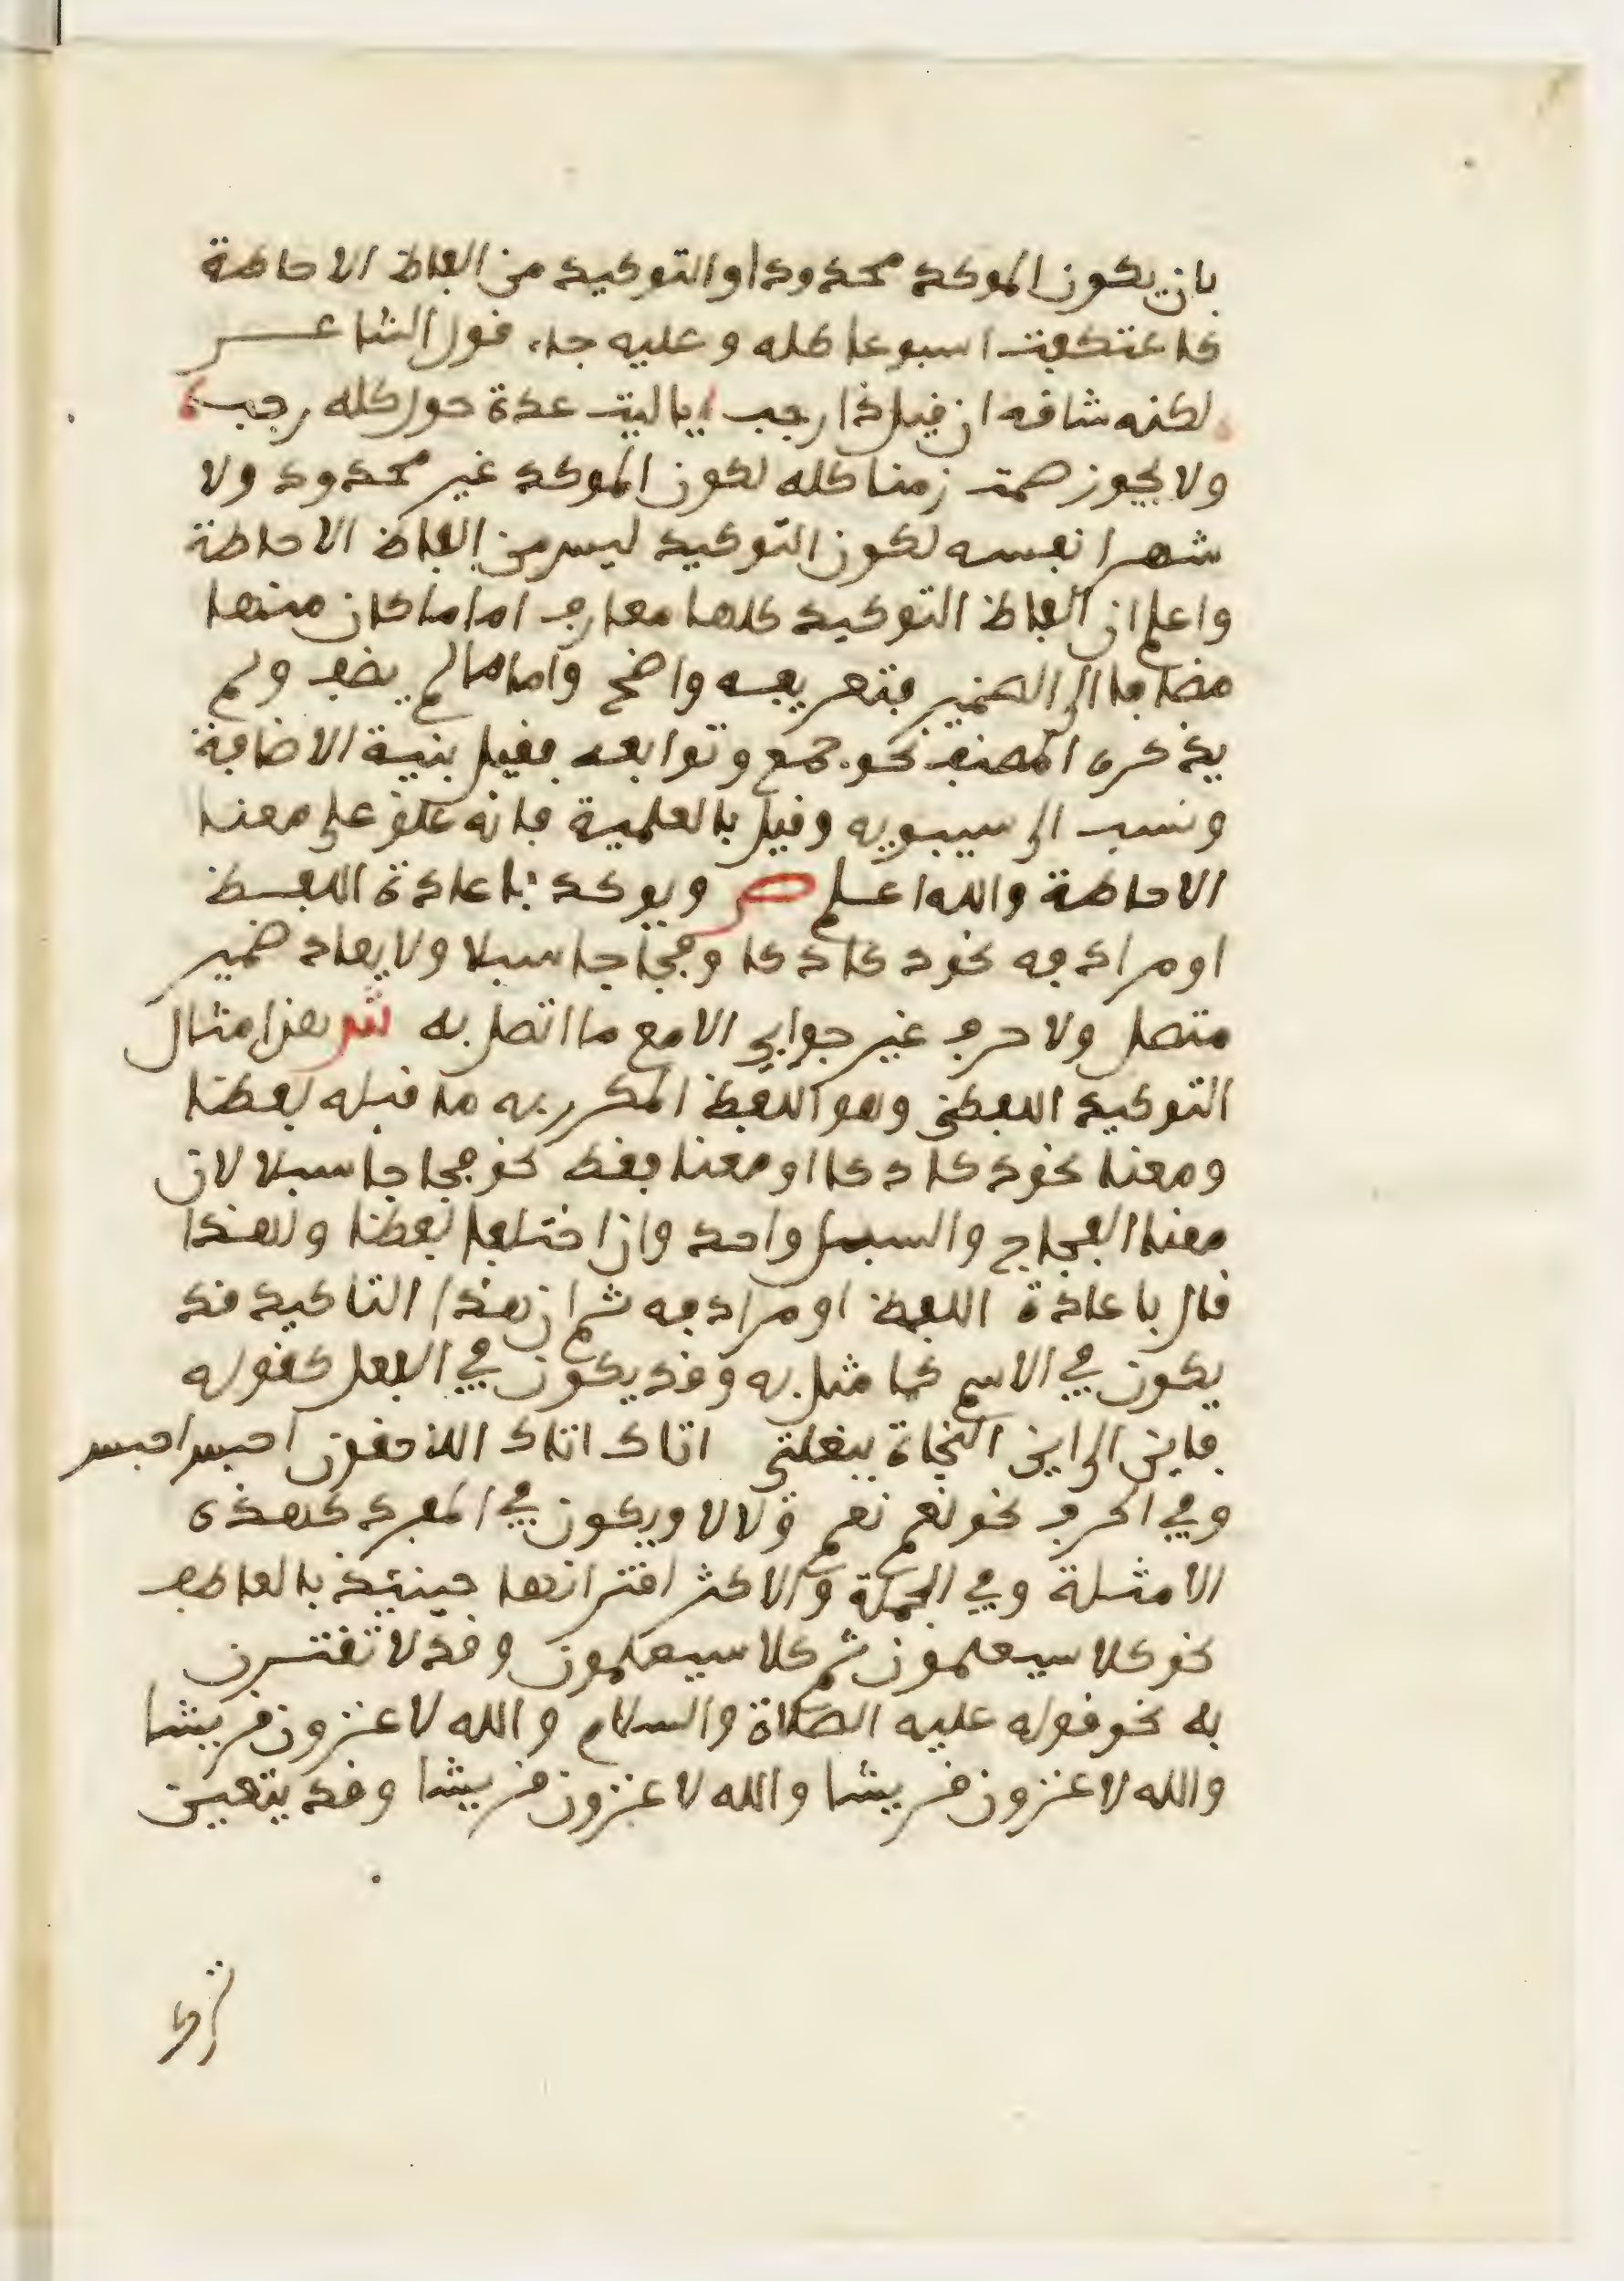 بان يكون الموكد محدودا والتوكيد من الفاظ الاحاطة
كاعتكفت اسبوعا كله وعليه جاء قول الشاعر
لكنه شاقه ان قيل ذا رجب يا ليت عدة حول كله رجب
ولا يجوز صمت زمنا كله لكون الموكد غير محدود ولا
شهرا نفسه لكون التوكيد ليس من الفاظ الاحاطة
واعلم ان الفاظ التوكيد كلها معارف اما ما كان منها
مضافا الى الضمير فتعريفه واضح واما ما لم يضف ولم
يذكره المصنف نحو جمع وتوابعه فقيل بنية الاضافة
ونسب الى سيبويه وقيل بالعلمية فانه علق على معنا
الاحاطة والله اعلم ص ويوكد باعادة اللفظ
او مرادفه نحو دكا دكا وفجاجا سبلا ولا يعاد ضمير
متصل ولا حرف غير جوابي الا مع ما اتصل به ش هذا مثال
التوكيد اللفظي وهو اللفظ المكرر به ما قبله لفظا
ومعنا نحو دكا دكا او معنا فقط نحو فجاجا سبلا لان
معنا الفجاج والسبل واحد وان اختلفا لفظا ولهذا
قال باعادة اللفظ او مرادفه ثم ان هذا التاكيد قد
يكون في الاسم كما مثل به وقد يكون في الفعل كقوله
فاين الى اين النجاة ببغلتي اتاك اتاك اللاحقون احبس احبس
وفي الحرف نحو نعم نعم ولا لا ويكون في المفرد كهذه
الامثلة وفي الجملة والاكثر اقترانها حينئذ بالعاطف
نحو كلا سيعلمون ثم كلا سيعلمون وقد لا تقترن
به نحو قوله عليه الصلاة والسلام والله لاغزون قريشا
والله لاغزون قريشا والله لاغزون قريشا وقد يتعين